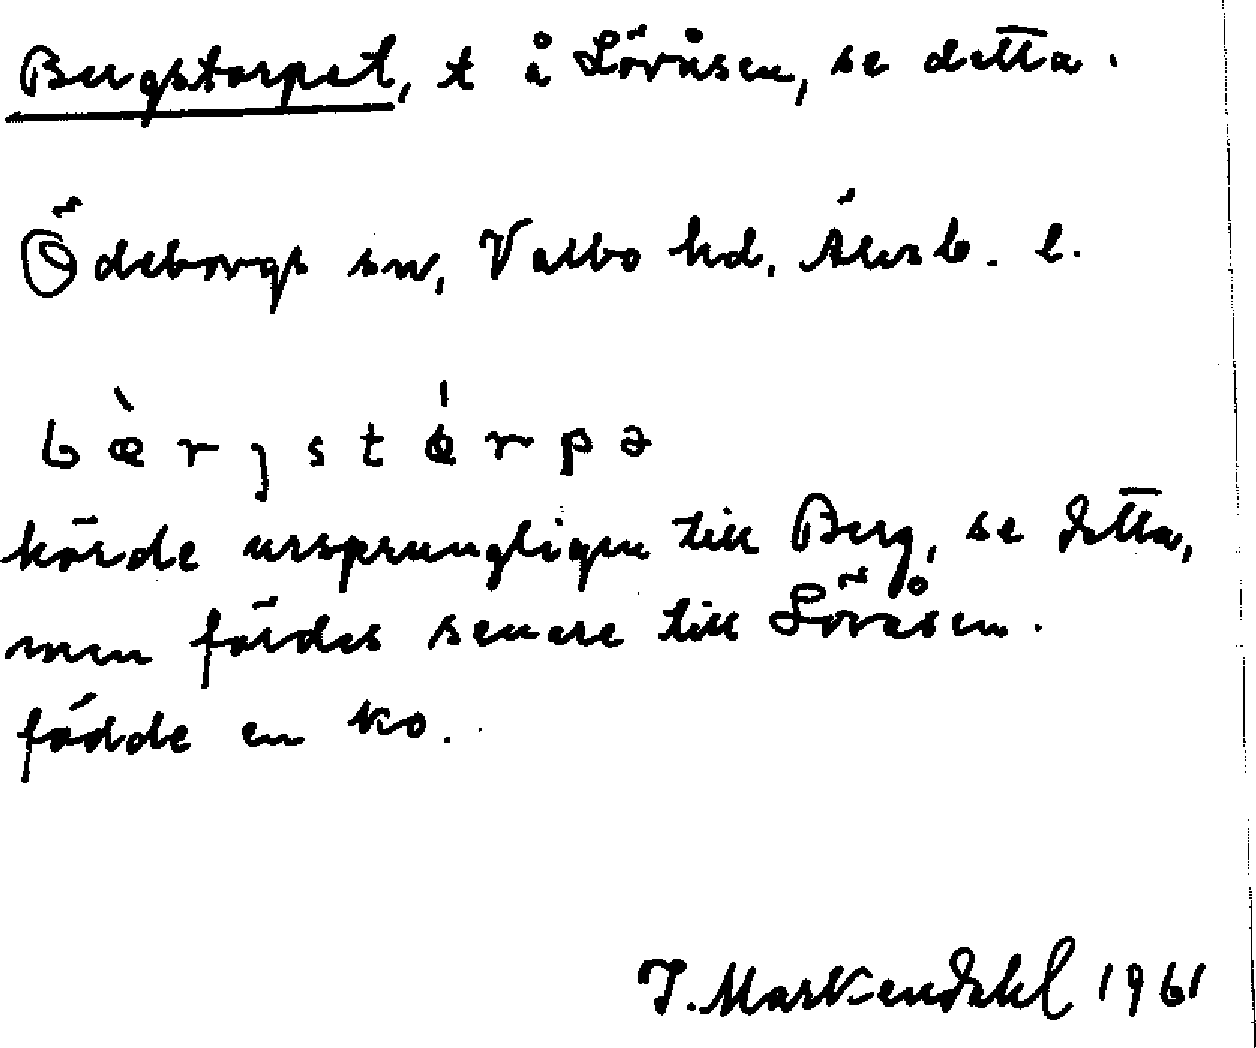 Bergstorpet, t å Lövåsen, se detta.
Ödeborgs sn, Valbo hd, Älvsb. l.
bæ̀rjstɷ́rpə
hörde ursprungligen till Berg, se detta,
men fördes senare till Lövåsen.
födde en ko.
J. Markendahl 1961